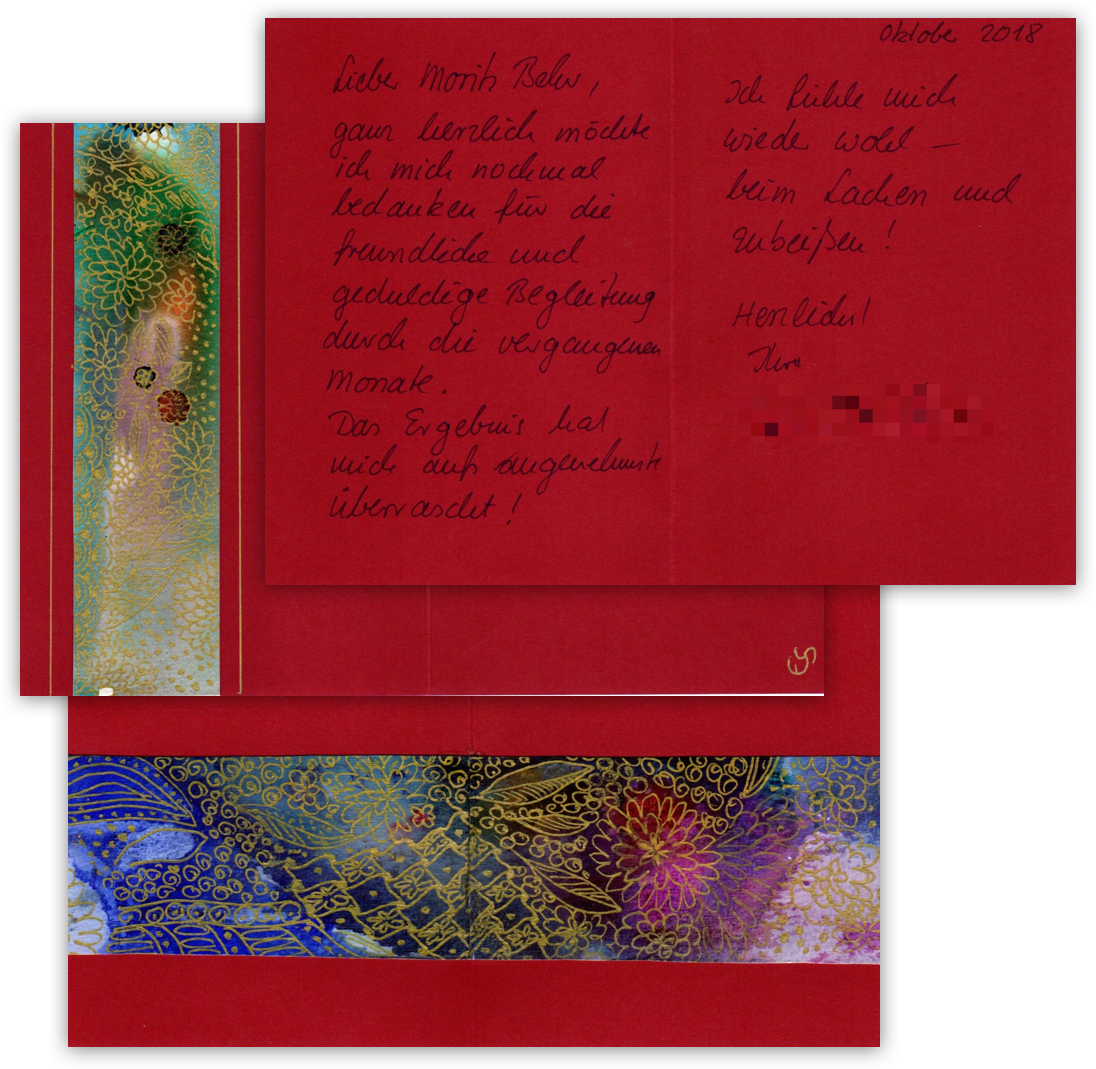 Oktober 2018
Lieber Moritz Behr,
ganz herzlich möchte
ich mich nochmal
bedanken für die
freundliche und
geduldige Begleitung
durch die vergangenen
Monate.
Das Ergebnis hat
mich aufs angenehmste
überrascht!
Ich fühle mich
wieder wohl –
beim Lachen und
Zubeißen!
Herzlichst
Ihre
ES